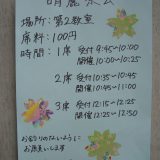 晴麗茶会
場所：第2教室
席料：100円
時間：1席 受付 9:45～10:00
開催 10:00～10:25
2席 受付 10:35～10:45
開催 10:45～11:10
3席 受付 12:15～12:25
開催 12:25～12:50
お釣りのないように
お願いします